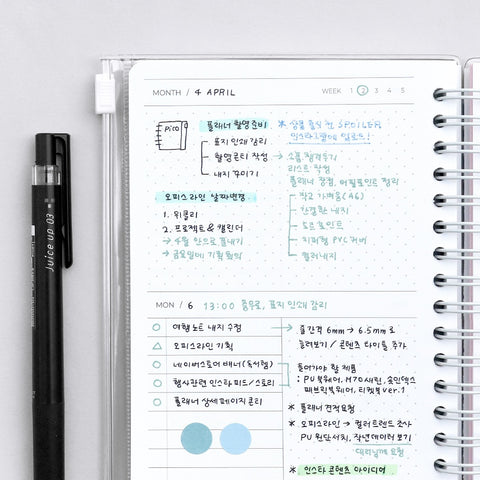 MONTH / 4 APRIL
WEEK 1 2 3 4 5
Pico
플래너 촬영준비
표지 인쇄 감리
촬영콘티 작성
내지 꾸미기
* 상품 출시 전 SPOILER
인스타그램에 업로드!
→ 소품 챙겨두기
리스트 작성
플래너 장점, 어필포인트 정리
작고 가벼움(A6)
간결한 내지
도트 포인트
지퍼형 PVC 커버
컬러내지
오피스라인 날짜변경
1. 위클리
2. 프로젝트 & 캘린더
→ 4월 안으로 끝내기
→ 금요일에 기획 회의
MON / 6 13:00 충무로, 표지 인쇄 감리
여행노트 내지 수정
오피스라인 기획
네이버스토어 배너(독서템)
행사관련 인스타 피드/스토리
플래너 상세페이지 콘티
→ 줄간격 6mm → 6.5mm 로
늘려보기 / 콘텐츠 타이틀 추가
들어가야 할 제품
: PU 북웨어, M70 새틴, 솜인덱스
패브릭북웨어, 리컷북 ver.1
* 플래너 견적요청
* 오피스라인 → 컬러트렌드 조사
PU 원단서치, 작년데이터 보기
대리님께 요청
* 인스타 콘텐츠 아이디어
Juice up 03